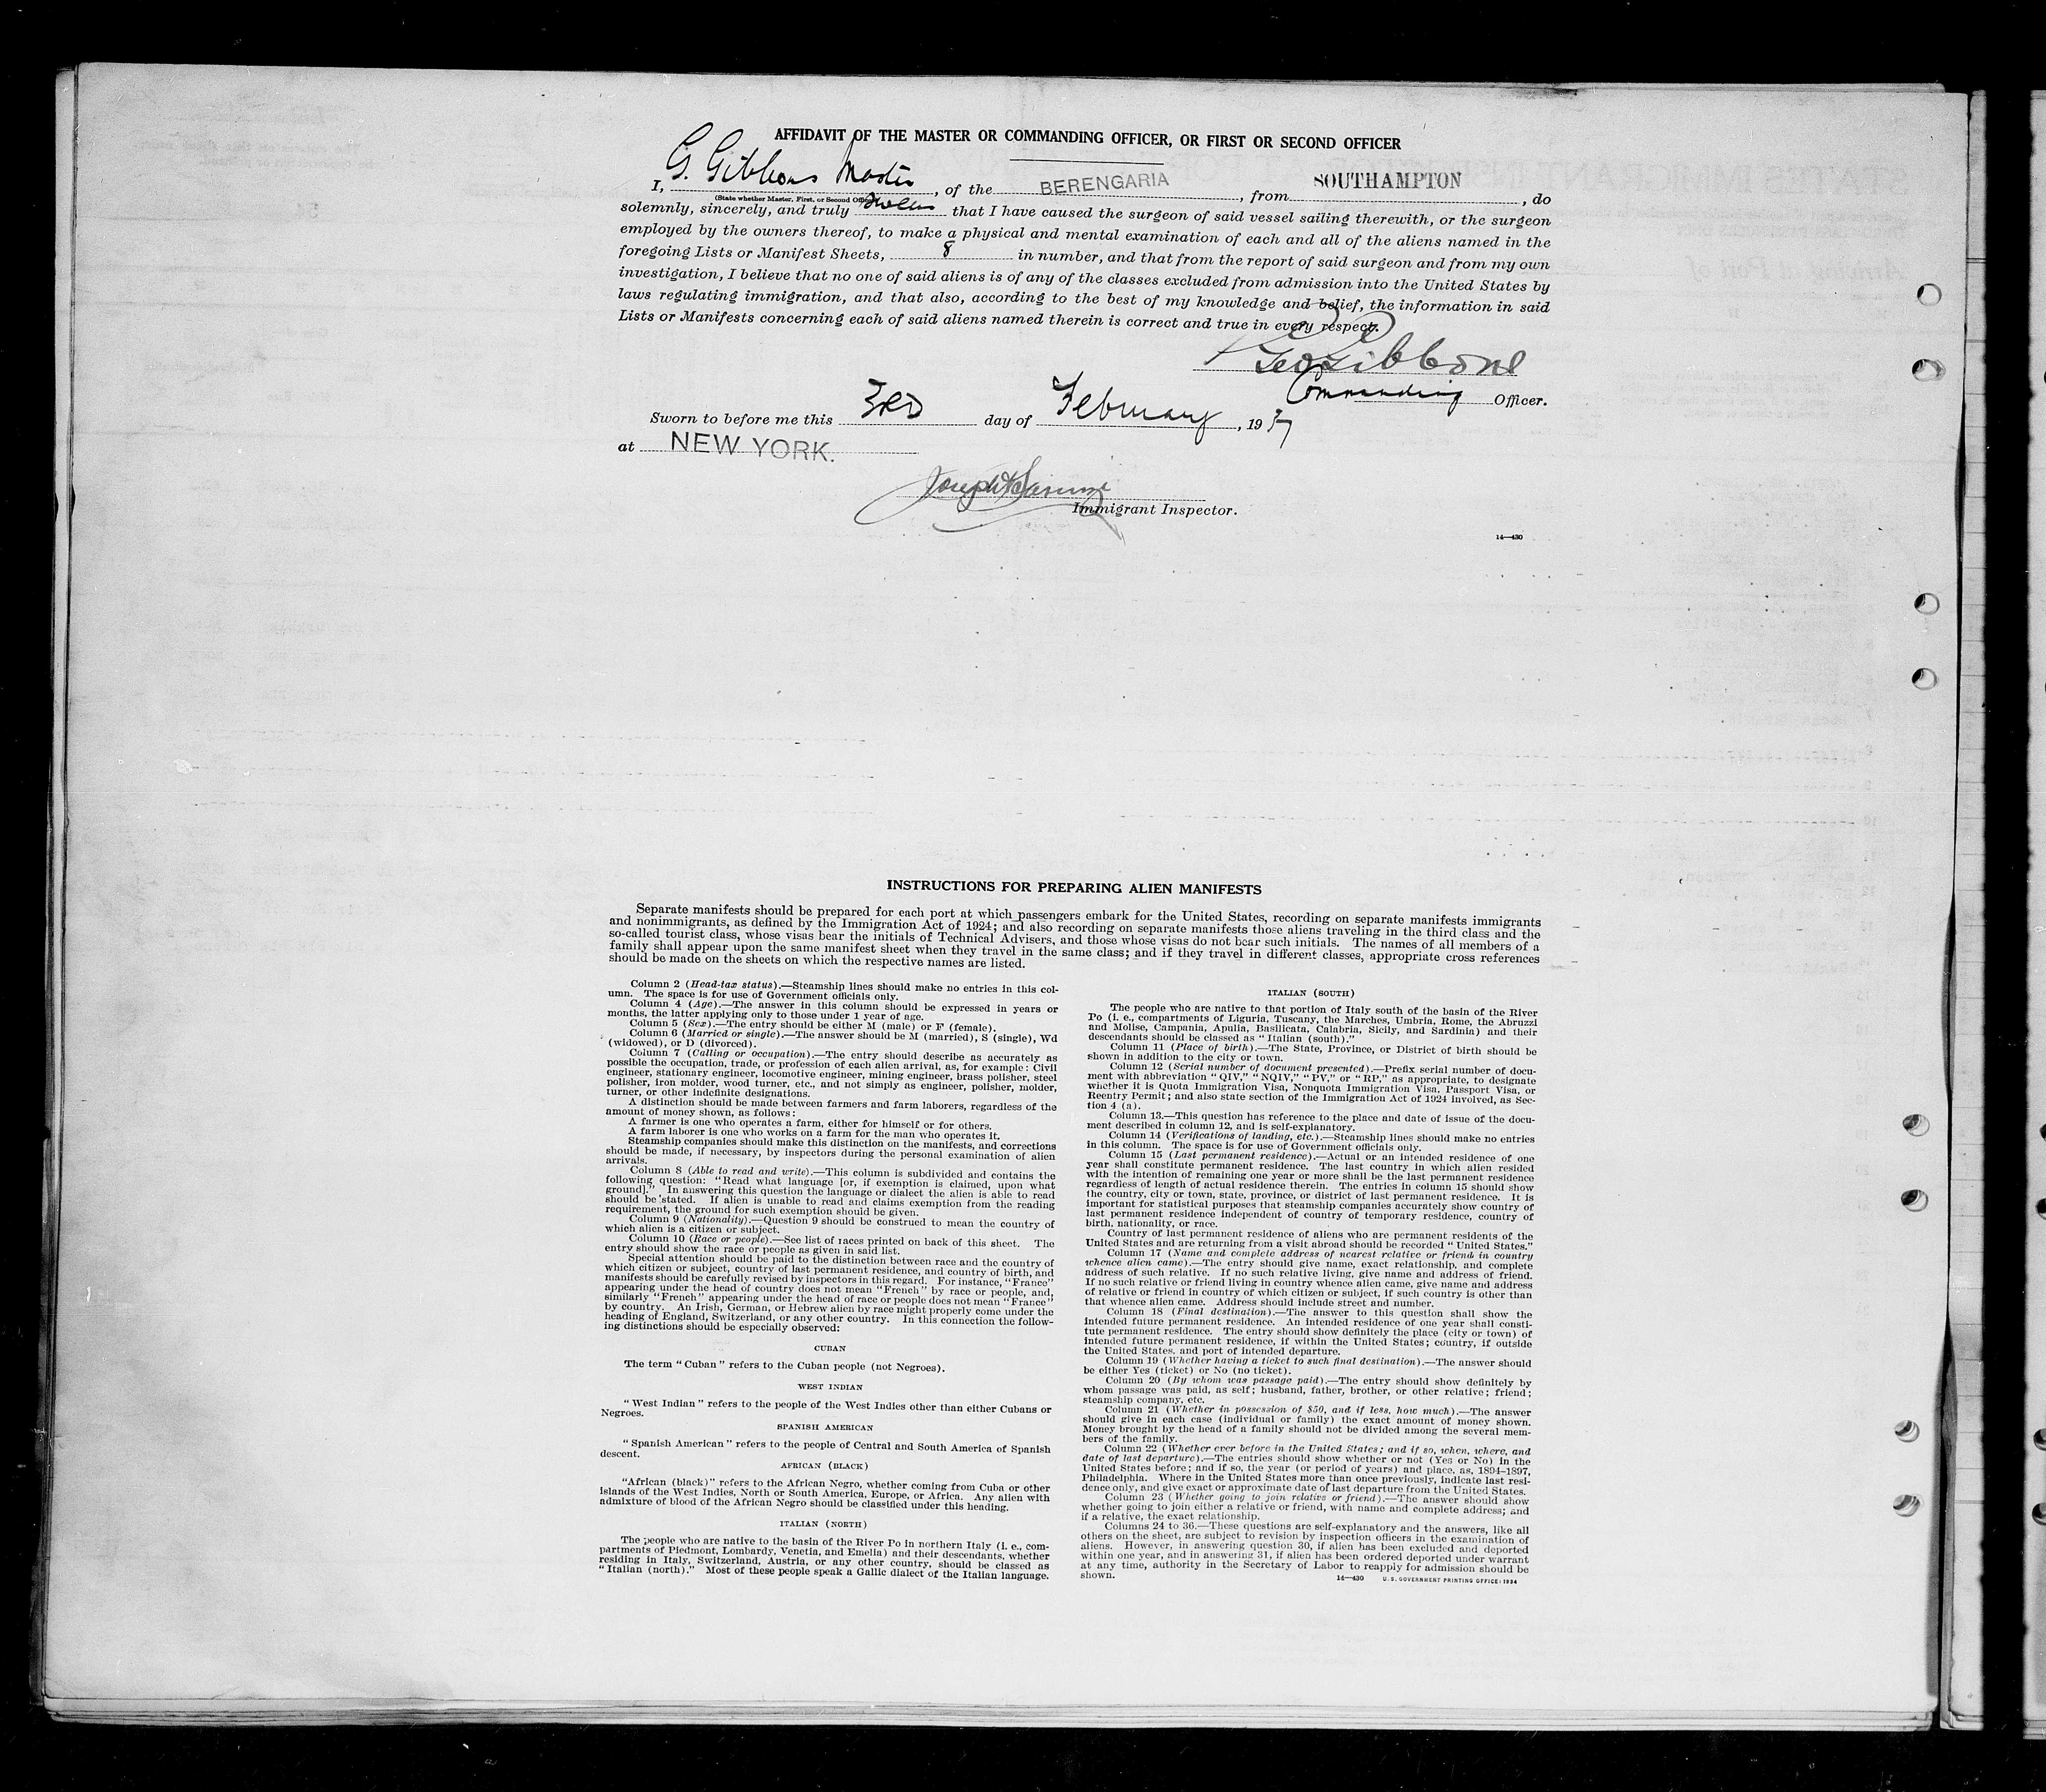 AFFIDAVIT OF THE MASTER OR COMMANDING OFFICER, OR FIRST OR SECOND OFFICER
I, G. Gibbons Master, of the BERENGARIA, from SOUTHAMPTON, do
(State whether Master, First, or Second Officer)
solemnly, sincerely, and truly swear that I have caused the surgeon of said vessel sailing therewith, or the surgeon
employed by the owners thereof, to make a physical and mental examination of each and all of the aliens named in the
foregoing Lists or Manifest Sheets, 8 in number, and that from the report of said surgeon and from my own
investigation, I believe that no one of said aliens is of any of the classes excluded from admission into the United States by
laws regulating immigration, and that also, according to the best of my knowledge and belief, the information in said
Lists or Manifests concerning each of said aliens named therein is correct and true in every respect.
Geo Gibbons
Commanding Officer.
Sworn to before me this 3RD day of February, 1937
at NEW YORK.
Joseph
Immigrant Inspector.
14—430
INSTRUCTIONS FOR PREPARING ALIEN MANIFESTS
Separate manifests should be prepared for each port at which passengers embark for the United States, recording on separate manifests immigrants
and nonimmigrants, as defined by the Immigration Act of 1924; and also recording on separate manifests those aliens traveling in the third class and the
so-called tourist class, whose visas bear the initials of Technical Advisers, and those whose visas do not bear such initials. The names of all members of a
family shall appear upon the same manifest sheet when they travel in the same class; and if they travel in different classes, appropriate cross references
should be made on the sheets on which the respective names are listed.
Column 2 (Head-tax status).—Steamship lines should make no entries in this col-
umn. The space is for use of Government officials only.
Column 4 (Age).—The answer in this column should be expressed in years or
months, the latter applying only to those under 1 year of age.
Column 5 (Sex).—The entry should be either M (male) or F (female).
Column 6 (Married or single).—The answer should be M (married), S (single), Wd
(widowed), or D (divorced).
Column 7 (Calling or occupation).—The entry should describe as accurately as
possible the occupation, trade, or profession of each alien arrival, as, for example: Civil
engineer, stationary engineer, locomotive engineer, mining engineer, brass polisher, steel
polisher, iron molder, wood turner, etc., and not simply as engineer, polisher, molder,
turner, or other indefinite designations.
A distinction should be made between farmers and farm laborers, regardless of the
amount of money shown, as follows:
A farmer is one who operates a farm, either for himself or for others.
A farm laborer is one who works on a farm for the man who operates it.
Steamship companies should make this distinction on the manifests, and corrections
should be made, if necessary, by inspectors during the personal examination of alien
arrivals.
Column 8 (Able to read and write).—This column is subdivided and contains the
following question: "Read what language [or, if exemption is claimed, upon what
ground]." In answering this question the language or dialect the alien is able to read
should be stated. If alien is unable to read and claims exemption from the reading
requirement, the ground for such exemption should be given.
Column 9 (Nationality).—Question 9 should be construed to mean the country of
which alien is a citizen or subject.
Column 10 (Race or people).—See list of races printed on back of this sheet. The
entry should show the race or people as given in said list.
Special attention should be paid to the distinction between race and the country of
which citizen or subject, country of last permanent residence, and country of birth, and
manifests should be carefully revised by inspectors in this regard. For instance, "France"
appearing under the head of country does not mean "French" by race or people, and,
similarly "French" appearing under the head of race or people does not mean "France"
by country. An Irish, German, or Hebrew alien by race might properly come under the
heading of England, Switzerland, or any other country. In this connection the follow-
ing distinctions should be especially observed:
CUBAN
The term "Cuban" refers to the Cuban people (not Negroes).
WEST INDIAN
"West Indian" refers to the people of the West Indies other than either Cubans or
Negroes.
SPANISH AMERICAN
"Spanish American" refers to the people of Central and South America of Spanish
descent.
AFRICAN (BLACK)
"African (black)" refers to the African Negro, whether coming from Cuba or other
islands of the West Indies, North or South America, Europe, or Africa. Any alien with
admixture of blood of the African Negro should be classified under this heading.
ITALIAN (NORTH)
The people who are native to the basin of the River Po in northern Italy (i. e., com-
partments of Piedmont, Lombardy, Venetia, and Emelia) and their descendants, whether
residing in Italy, Switzerland, Austria, or any other country, should be classed as
"Italian (north)." Most of these people speak a Gallic dialect of the Italian language.
ITALIAN (SOUTH)
The people who are native to that portion of Italy south of the basin of the River
Po (i. e., compartments of Liguria, Tuscany, the Marches, Umbria, Rome, the Abruzzi
and Molise, Campania, Apulia, Basilicata, Calabria, Sicily, and Sardinia) and their
descendants should be classed as "Italian (south)."
Column 11 (Place of birth).—The State, Province, or District of birth should be
shown in addition to the city or town.
Column 12 (Serial number of document presented).—Prefix serial number of docu-
ment with abbreviation "QIV," "NQIV," "PV," or "RP," as appropriate, to designate
whether it is Quota Immigration Visa, Nonquota Immigration Visa, Passport Visa, or
Reentry Permit; and also state section of the Immigration Act of 1924 involved, as Sec-
tion 4 (a).
Column 13.—This question has reference to the place and date of issue of the docu-
ment described in column 12, and is self-explanatory.
Column 14 (Verifications of landing, etc.).—Steamship lines should make no entries
in this column. The space is for use of Government officials only.
Column 15 (Last permanent residence).—Actual or an intended residence of one
year shall constitute permanent residence. The last country in which alien resided
with the intention of remaining one year or more shall be the last permanent residence
regardless of length of actual residence therein. The entries in column 15 should show
the country, city or town, state, province, or district of last permanent residence. It is
important for statistical purposes that steamship companies accurately show country of
last permanent residence independent of country of temporary residence, country of
birth, nationality, or race.
Country of last permanent residence of aliens who are permanent residents of the
United States and are returning from a visit abroad should be recorded "United States."
Column 17 (Name and complete address of nearest relative or friend in country
whence alien came).—The entry should give name, exact relationship, and complete
address of such relative. If no such relative living, give name and address of friend.
If no such relative or friend living in country whence alien came, give name and address
of relative or friend in country of which citizen or subject, if such country is other than
that whence alien came. Address should include street and number.
Column 18 (Final destination).—The answer to this question shall show the
intended future permanent residence. An intended residence of one year shall consti-
tute permanent residence. The entry should show definitely the place (city or town) of
intended future permanent residence, if within the United States; country, if outside
the United States, and port of intended departure.
Column 19 (Whether having a ticket to such final destination).—The answer should
be either Yes (ticket) or No (no ticket).
Column 20 (By whom was passage paid).—The entry should show definitely by
whom passage was paid, as self; husband, father, brother, or other relative; friend;
steamship company, etc.
Column 21 (Whether in possession of $50, and if less, how much).—The answer
should give in each case (individual or family) the exact amount of money shown.
Money brought by the head of a family should not be divided among the several mem-
bers of the family.
Column 22 (Whether ever before in the United States; and if so, when, where, and
date of last departure).—The entries should show whether or not (Yes or No) in the
United States before; and if so, the year (or period of years) and place, as, 1894–1897,
Philadelphia. Where in the United States more than once previously, indicate last resi-
dence only, and give exact or approximate date of last departure from the United States.
Column 23 (Whether going to join relative or friend).—The answer should show
whether going to join either a relative or friend, with name and complete address; and
if a relative, the exact relationship.
Columns 24 to 36.—These questions are self-explanatory and the answers, like all
others on the sheet, are subject to revision by inspection officers in the examination of
aliens. However, in answering question 30, if alien has been excluded and deported
within one year, and in answering 31, if alien has been ordered deported under warrant
at any time, authority in the Secretary of Labor to reapply for admission should be
shown.
14—430 U. S. GOVERNMENT PRINTING OFFICE: 1934